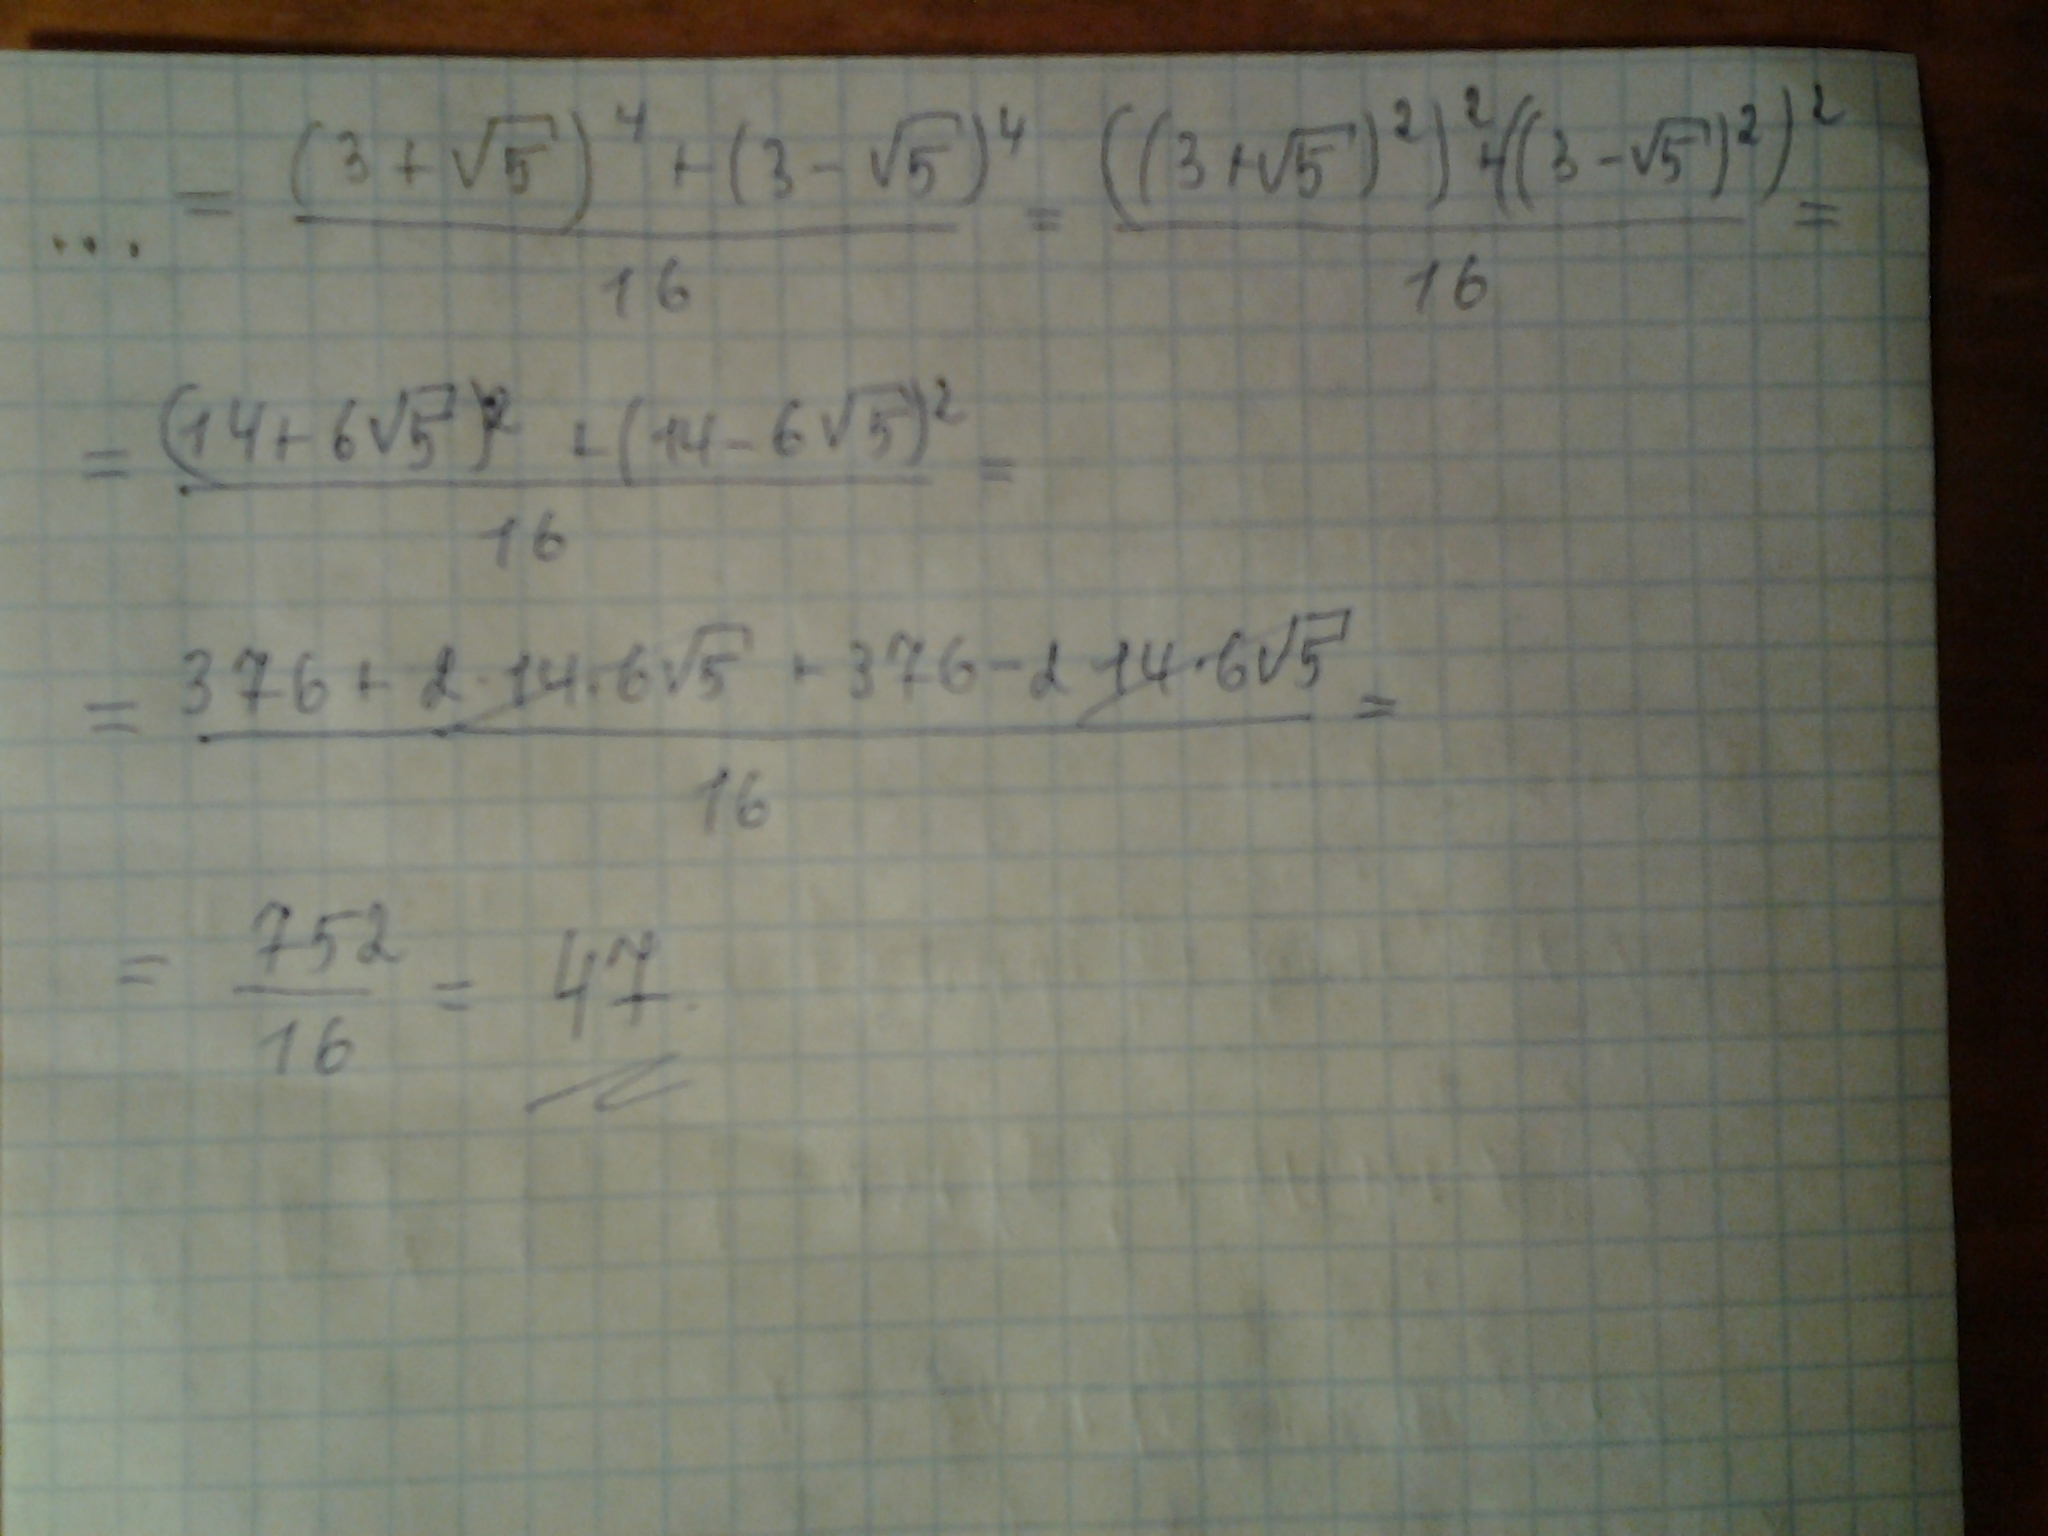 ... = (3+√5)⁴ + (3-√5)⁴ / 16 = ((3+√5)²)² + ((3-√5)²)² / 16 =
= (14+6√5)² + (14-6√5)² / 16 =
= 376 + 2·14·6√5 + 376 - 2 14·6√5 / 16 =
= 752 / 16 = 47.